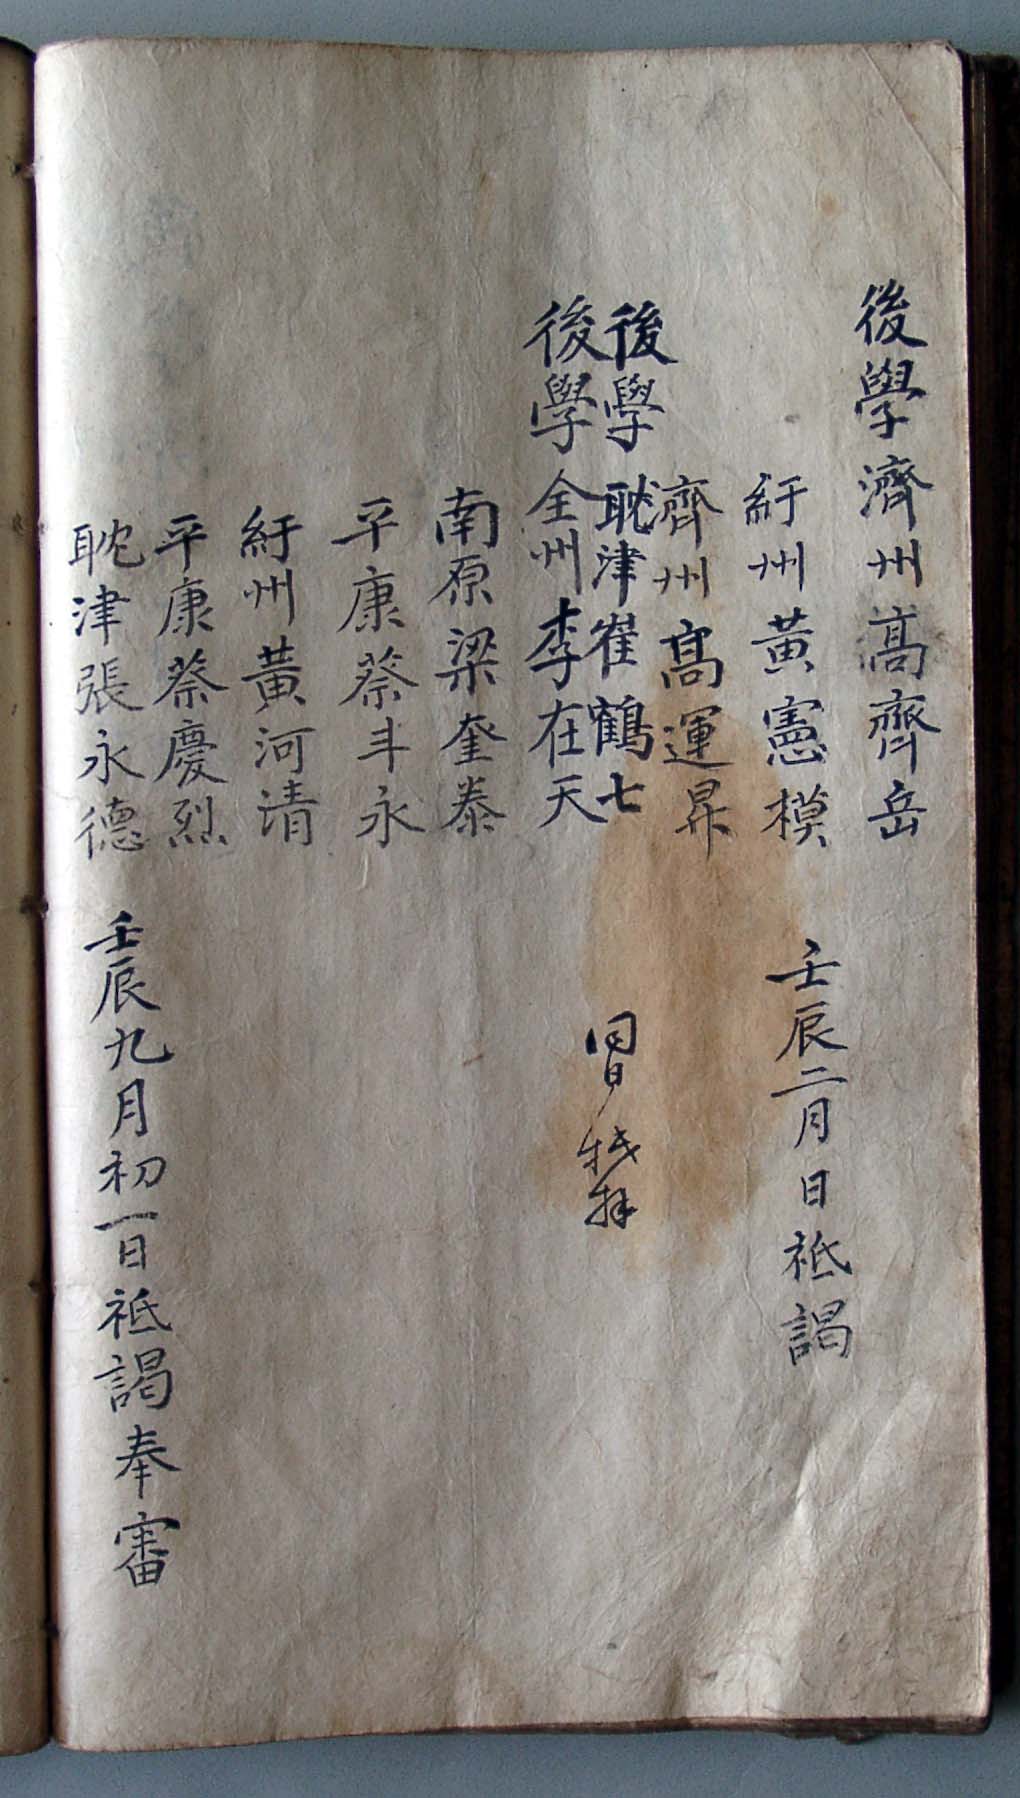 後學濟州高齊岳
紆州黃憲模 壬辰二月日祗謁
齊州高運昇
後學耽津崔鶴七 同日祗拜
後學全州李在天
南原梁奎泰
平康蔡斗永
紆州黃河清
平康蔡慶烈
耽津張永德 壬辰九月初一日祗謁奉審